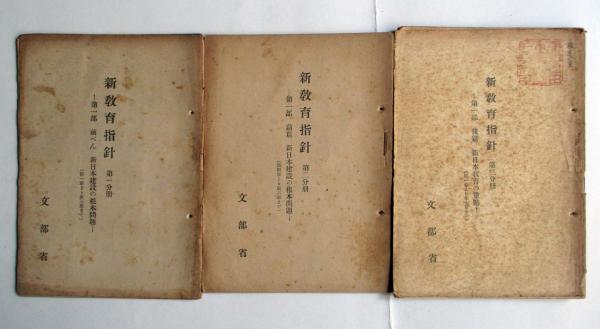 新教育指針 第一分册
―第一部 前ぺん 新日本建設の根本問題―
文部省
新教育指針 第二分册
―第一部 前篇 新日本建設の根本問題―
文部省
新教育指針 第三分册
―第一部 後篇 新日本教育の重點―
文部省